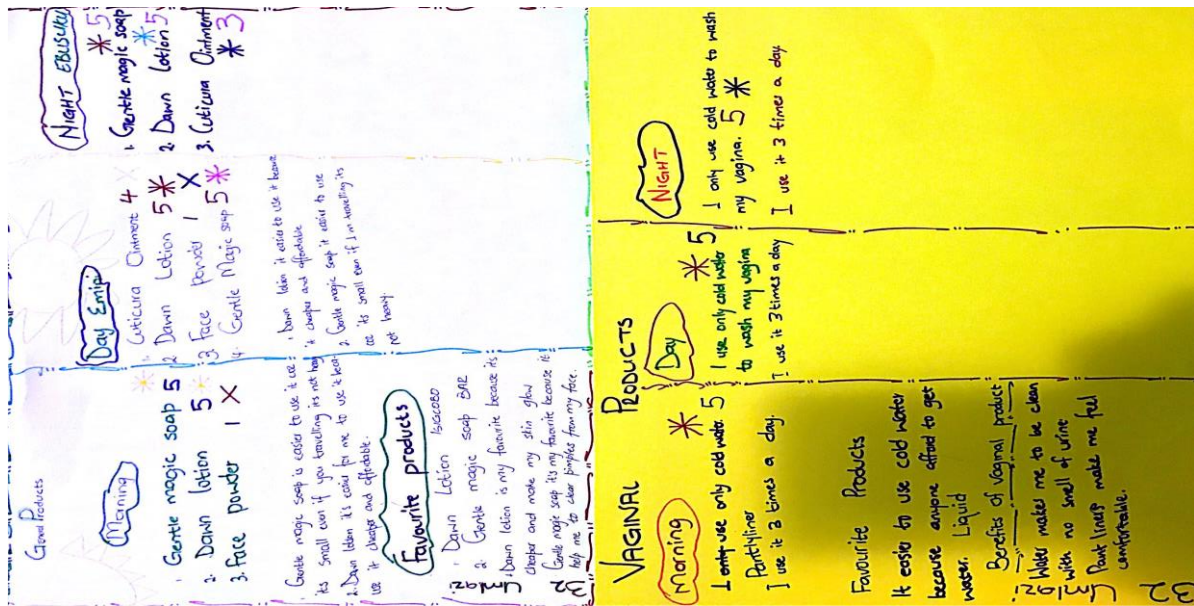 General Products
Morning
1. Gentle magic soap 5
2. Dawn lotion 5
3. Face powder 1 X
1. Gentle magic soap is easier to use it coz
its small even if you travelling its not heavy
2. Dawn lotion it's easier for me to use it becoz
use it cheaper and affordable.
Favourite products
1. Dawn Lotion ISIGCOBO
2. Gentle magic soap BAR
1. Dawn lotion is my favourite because its
cheaper and make my skin glow
Gentle magic soap its my favourite because it
help me to clear pimples from my face.
Umlazi
32
Day Emini
1. Cuticura Ointment 4 X
2. Dawn Lotion 5 *
3. Face powder 1 X
4. Gentle Magic soap 5 *
1. Dawn lotion it easier to use it because
it cheaper and affordable
2. Gentle magic soap it easier to use
coz its small even if I'm travelling its
not heavy.
NIGHT EBUSUKU
* 5
1. Gentle magic soap
*
2. Dawn lotion 5
3. Cuticura Ointment
* 3
VAGINAL PRODUCTS
Morning
* 5
I only use only cold water
Pantyliner
I use it 3 times a day.
Favourite Products
It easier to use cold water
because anyone afford to get
water. Liquid
Benefits of vaginal product
Water makes me to be clean
with no smell of urine
Pant liners make me feel
comfortable.
Umlazi
32
Day
* 5
I use only cold water
to wash my vagina
I use it 3 times a day
NIGHT
I only use cold water to wash
my vagina. 5 *
I use it 3 times a day